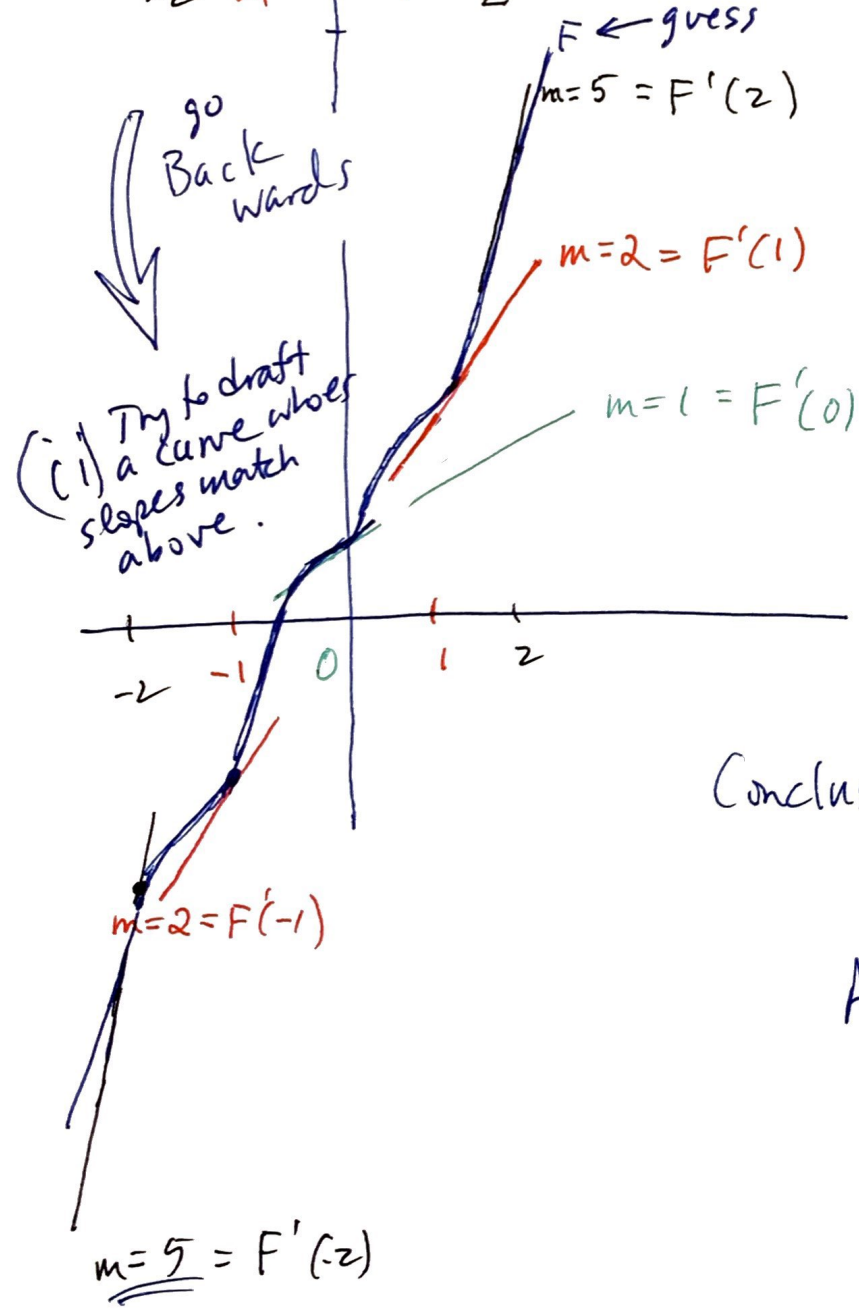 F ← guess
m=5 = F'(2)
go
Back
wards
m=2= F'(1)
(i) Try to draft
a curve whoes
slopes match
above.
m=1 = F'(0)
-2 -1 0 1 2
Conclu
m=2=F'(-1)
A
m=5 = F'(-2)